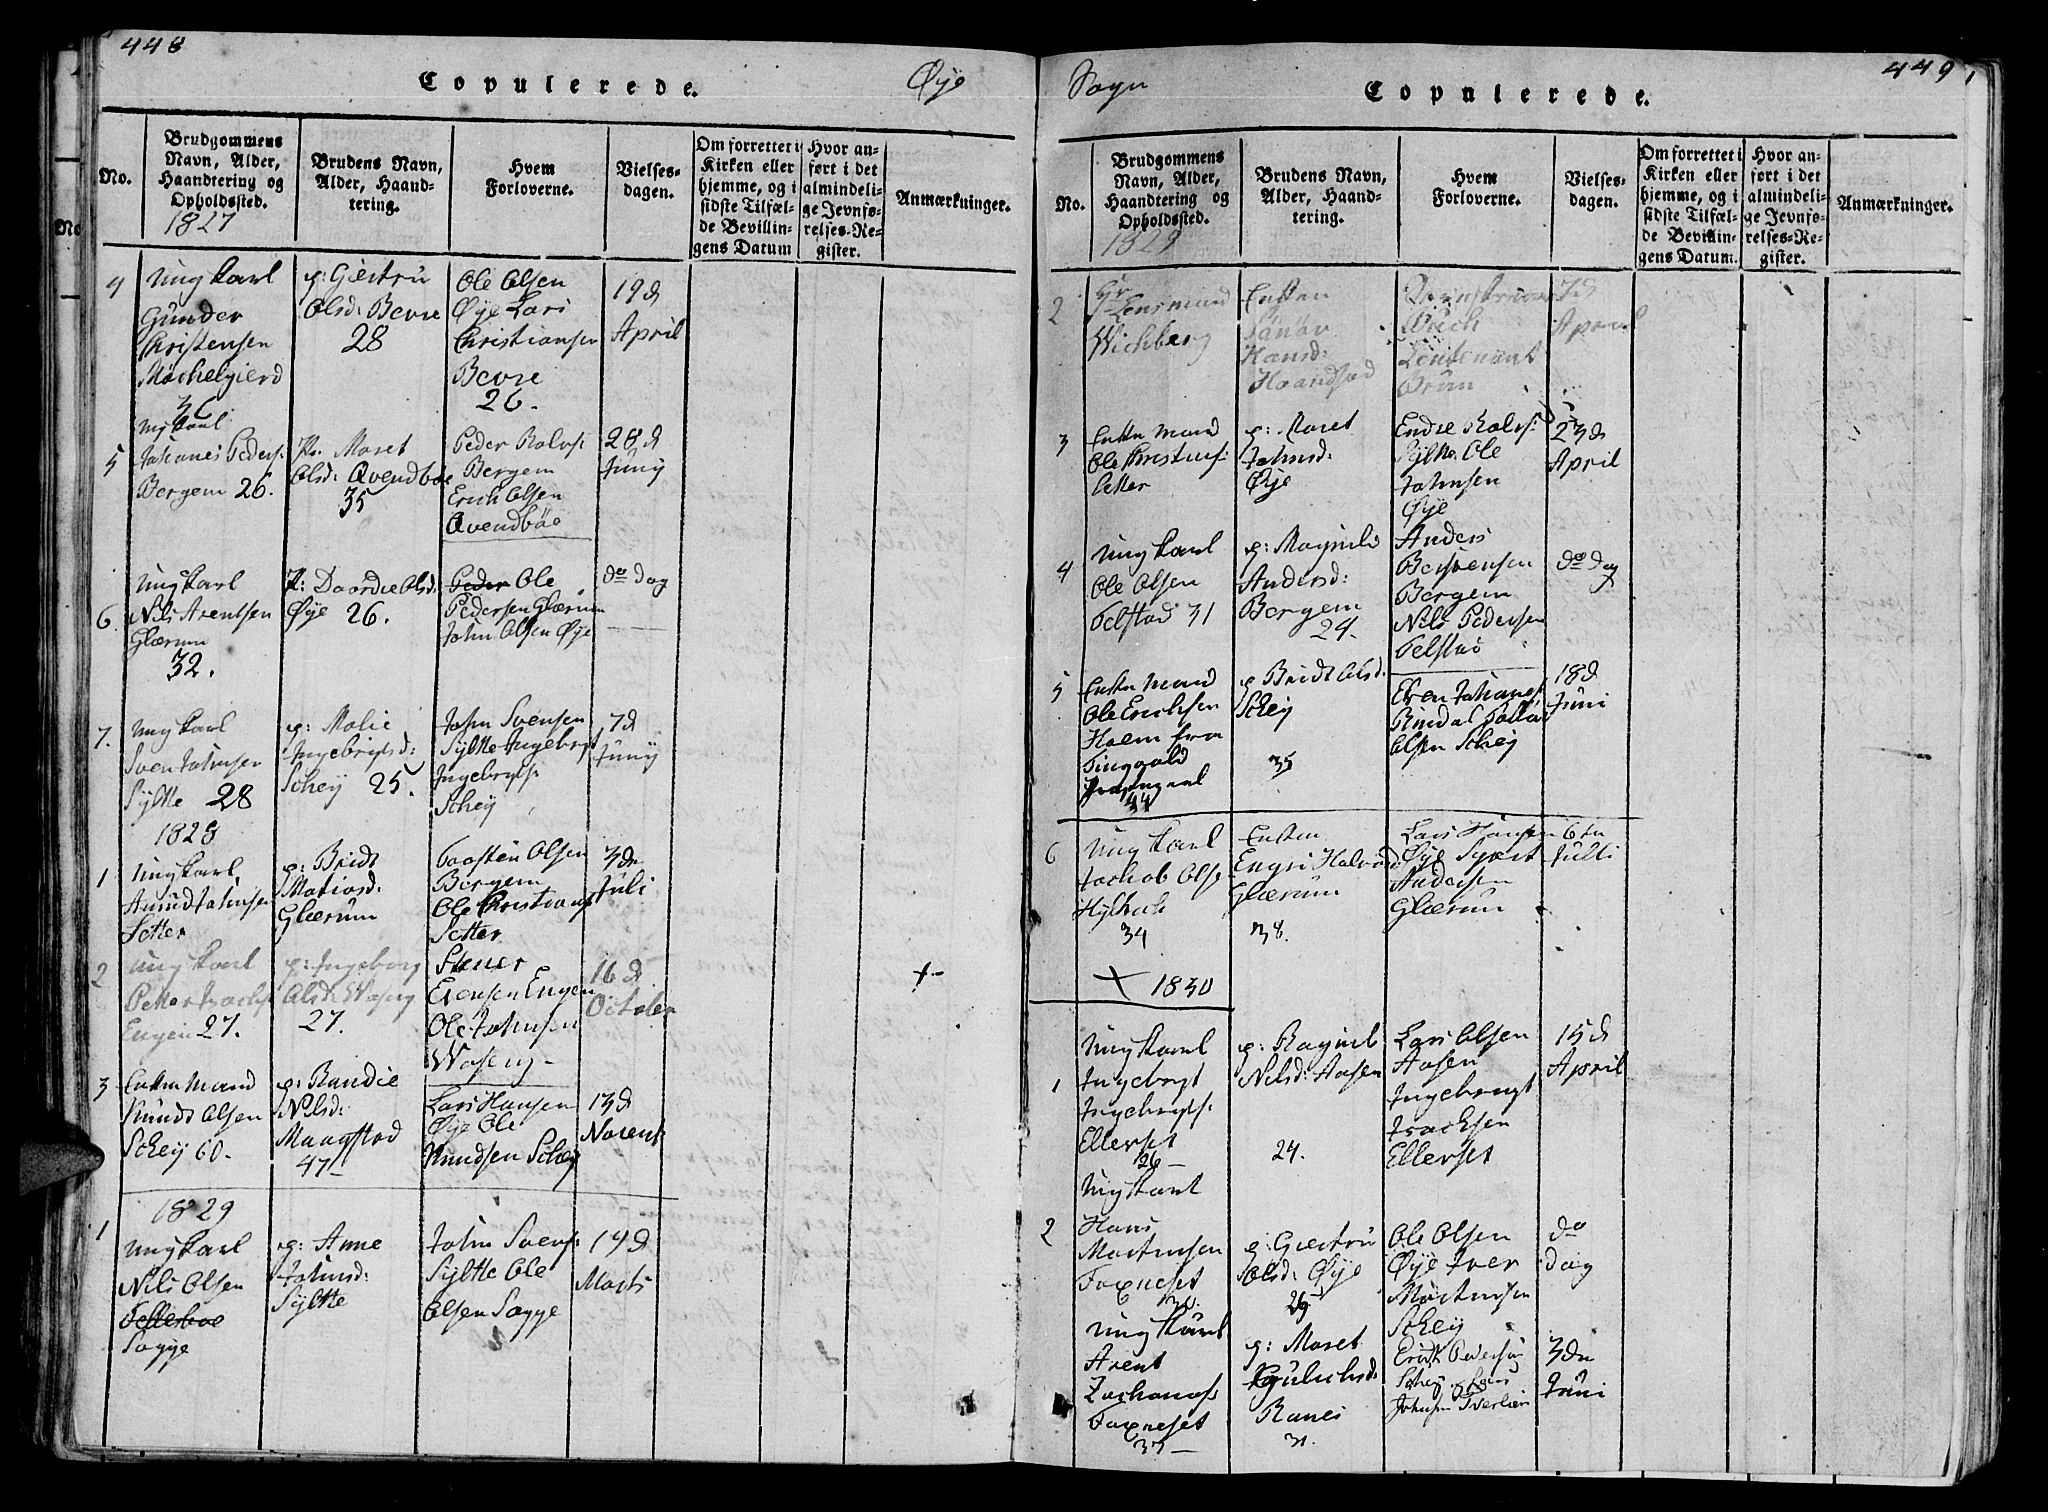 448
Copulerede.
Øye
No.
Brudgommens
Navn, Alder,
Haandtering og
Opholdssted.
1827
Brudens Navn,
Alder, Haand-
tering.
Hvem
Forloverne.
Vielses-
dagen.
Om forrettet i
Kirken eller
hjemme, og i
sidste Tilfæl-
de Bevillin-
gens Datum
Hvor an-
ført i det
almindeli-
ge Jevnfø-
relses-Re-
gister.
Anmærkninger.
4
Ungkarl
Gunder
Christensen
p: Giertru
Olsd: Bevre
28
Ole Olsen
Øye Lars
Christiansen
Bevre
26.
19d
April
5
Ungkarl
Johanes Peders:
Bergem 26.
P: Maret
Olsd: Qvendboe
35
Peder Rolvs:
Bergem
Erich Olsen
Qvendböe
28d
Juny
6
Ungkarl
Nils Arentsen
Glærum
32.
P: Daardie Olsd:
Øye 26.
Peder Ole
Pedersen Glærum
John Olsen Øye
do dag
7.
Ungkarl
Sven Johnsen
Sylte 28
p: Malie
Ingebrigtsd:
Schey 25.
John Svensen
Sylte Ingebrigt
Ingebrigts:
Schey
7d
Juny
1828
1
Ungkarl
Amund Johnsen
Setter
p: Bridt
Matiasd:
Glærum
Taasten Olsen
Bergem
Ole Christians:
Setter
3de
Juli
2
Ungkarl
Petter Isachs:
Engen 27.
p: Ingeborg
Olsd: Waseng
27.
Stener
Evensen Engen
Ole Johnsen
Waseng
16d
October
+
3
Enkemand
Knud Olsen
Schey 60.
p: Randie
Nilsd:
Maagstad
47
Lars Hansen
Øye Ole
Knudsen Schey
13d
Novemb
1829
1
Ungkarl
Nils Olsen
Sogge
p: Anne
Johnsd:
Sylte
John Svens:
Sylte Ole
Olsen Sogge
19d
Marts
449
Sogn
Copulerede.
No.
Brudgommens
Navn, Alder,
Haandtering og
Opholdssted.
1829
Brudens Navn,
Alder, Haand-
tering.
Hvem
Forloverne.
Vielses-
dagen.
Om forrettet i
Kirken eller
hjemme, og i
sidste Tilfæl-
de Bevillin-
gens Datum.
Hvor an-
ført i det
almindeli-
ge Jevnfø-
relses-Re-
gister.
Anmærkninger.
2
Hr
Lensmand
Wichberg
Enken
Hansd:
Lieutenant
7d
April
3
Enkemand
Ole Christens:
Setter
p: Maret
Johnsd:
Øye
Endre Rolvs:
Sylte Ole
Johnsen
Øye
23d
April
4
Ungkarl
Ole Olsen
Telstad 31
p: Magnild
Andersd:
Bergem
24.
Anders
Bergem
Nils Pedersen
Telstad
do dag
5
Enkemand
Ole Erichsen
Holm fra
Tingvold
44
p Bridt Olsd:
Schey
35
Even Johans:
Olsen Schey
18d
Juni
6
Ungkarl
Jachob Olse
34
Enken
Engri Halvorsd
Glærum
38.
Lars Hansen
Øye Syvert
Andersen
Glærum
6te
Julli
+ 1830
1
Ungkarl
Ingebrigt
Ingebrigts:
Ellerset
26
p: Ragnil
Nilsd: Aasen
24.
Lars Olsen
Aasen
Ingebrigt
Isachsen
Ellerset
15d
April
2
Ungkarl
Hans
Mortensen
Foxneset
30.
p: Giertru
Olsd: Øye
29
Ole Olsen
Øye Iver
Mortensen
Schey
do
dag
Ungkarl
Arent
Zachariass
Foxneset
33
p: Maret
Gulichsd:
Ranes
31.
Erich Pedersen
Schey og Lars
Johnsen Tverlien
3de
Juni